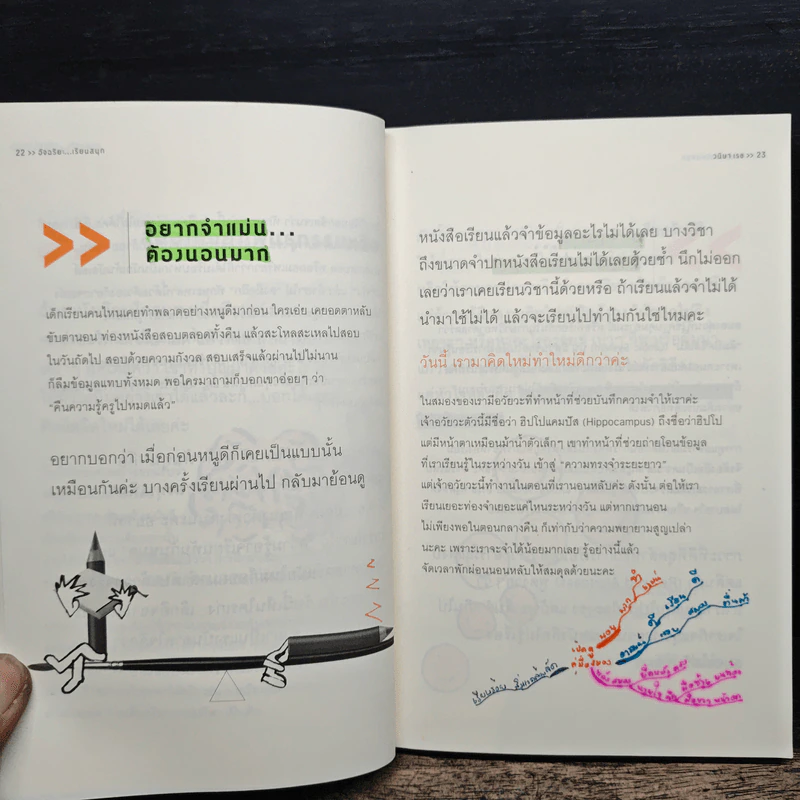 22 >> อัจฉริยะ...เรียนสนุก
อยากจำแม่น...
ต้องนอนมาก
เด็กเรียนคนไหนเคยทำพลาดอย่างหนูดีมาก่อน ใครเอ่ย เคยอดตาหลับ
ขับตานอน ท่องหนังสือสอบตลอดทั้งคืน แล้วสะโหลสะเหลไปสอบ
ในวันถัดไป สอบด้วยความกังวล สอบเสร็จแล้วผ่านไปไม่นาน
ก็ลืมข้อมูลแทบทั้งหมด พอใครมาถามก็บอกเขาอ่อยๆ ว่า
"คืนความรู้ครูไปหมดแล้ว"
อยากบอกว่า เมื่อก่อนหนูดีก็เคยเป็นแบบนั้น
เหมือนกันค่ะ บางครั้งเรียนผ่านไป กลับมาย้อนดู
z
z
z
วนิษา เรซ >> 23
หนังสือเรียนแล้วจำข้อมูลอะไรไม่ได้เลย บางวิชา
ถึงขนาดจำปกหนังสือเรียนไม่ได้เลยด้วยซ้ำ นึกไม่ออก
เลยว่าเราเคยเรียนวิชานี้ด้วยหรือ ถ้าเรียนแล้วจำไม่ได้
นำมาใช้ไม่ได้ แล้วจะเรียนไปทำไมกันใช่ไหมคะ
วันนี้ เรามาคิดใหม่ทำใหม่ดีกว่าค่ะ
ในสมองของเรามีอวัยวะที่ทำหน้าที่ช่วยบันทึกความจำให้เราค่ะ
เจ้าอวัยวะตัวนี้มีชื่อว่า ฮิปโปแคมปัส (Hippocampus) ถึงชื่อว่าฮิปโป
แต่มีหน้าตาเหมือนม้าน้ำตัวเล็กๆ เขาทำหน้าที่ช่วยถ่ายโอนข้อมูล
ที่เราเรียนรู้ในระหว่างวัน เข้าสู่ "ความทรงจำระยะยาว"
แต่เจ้าอวัยวะนี้ทำงานในตอนที่เรานอนหลับค่ะ ดังนั้น ต่อให้เรา
เรียนเยอะท่องจำเยอะแค่ไหนระหว่างวัน แต่หากเรานอน
ไม่เพียงพอในตอนกลางคืน ก็เท่ากับว่าความพยายามสูญเปล่า
นะคะ เพราะเราจะจำได้น้อยมากเลย รู้อย่างนี้แล้ว
จัดเวลาพักผ่อนนอนหลับให้สมดุลด้วยนะคะ
นอน มาก จำ แม่น
เปิดดู
คู่มือสมอง